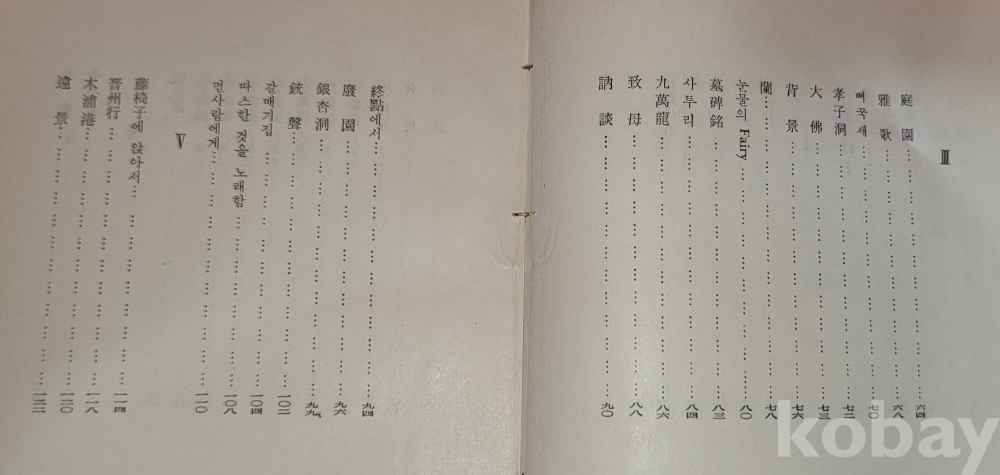 Ⅲ
庭園 … … … … … … 六四
雅歌 … … … … … … 六八
뻐꾹새 … … … … … … 七〇
孝子洞 … … … … … … 七二
大佛 … … … … … … 七三
背景 … … … … … … 七六
蘭 … … … … … … 七八
눈물의 Fairy … … … … … … 八〇
墓碑銘 … … … … … … 八三
사투리 … … … … … … 八四
九萬龍 … … … … … … 八六
致母 … … … … … … 八八
訥談 … … … … … … 九〇
終點에서 … … … … … … 九四
廢園 … … … … … … 九六
銀杏洞 … … … … … … 九九
銃聲 … … … … … … 一〇二
갈매기집 … … … … … … 一〇四
따스한 것을 노래함 … … … … … 一〇八
먼사람에게 … … … … … … 一一〇
Ⅴ
藤椅子에 앉아서 … … … … … … 一一四
晋州行 … … … … … … 一一八
木浦港 … … … … … … 一二〇
遠景 … … … … … … 一二二
kobay